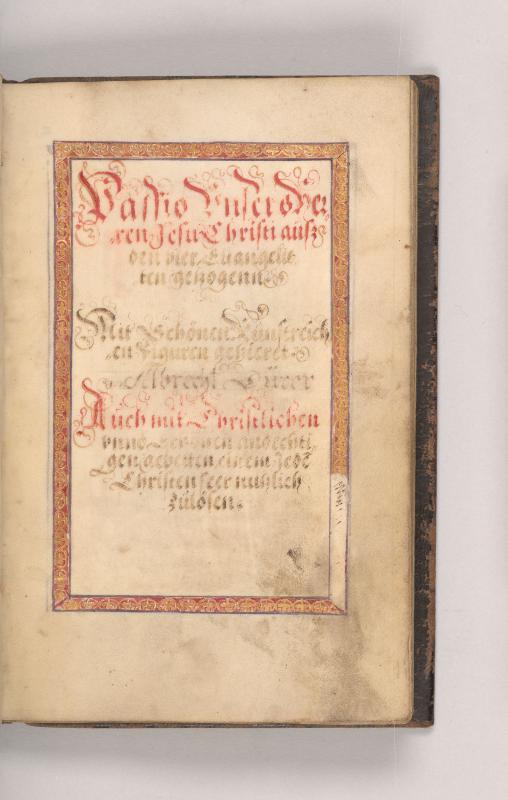 Passio Unsers Her-
ren Jesu Christi ausz
den vier Euangelis
ten gezogenn
Mit Schönen Kunstreich
en Figuren gezieret
Albrecht Dürer
Auch mit Christlichen
unnd Schönen andechti
gen gebetten einem Jedē
Christen seer nutzlich
zulösen.